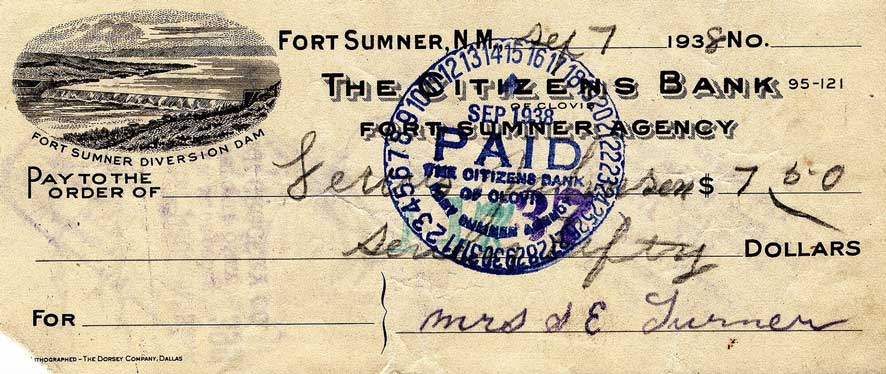 FORT SUMNER, N.M., Sep 7 1938 NO.
THE CITIZENS BANK 95-121
OF CLOVIS
FORT SUMNER AGENCY
FORT SUMNER DIVERSION DAM
PAY TO THE ORDER OF $ 7 50
DOLLARS
FOR
Mrs S E Turner
LITHOGRAPHED - THE DORSEY COMPANY, DALLAS
SEP 1938
PAID
THE CITIZENS BANK
OF CLOVIS
FORT SUMNER AGENCY
37